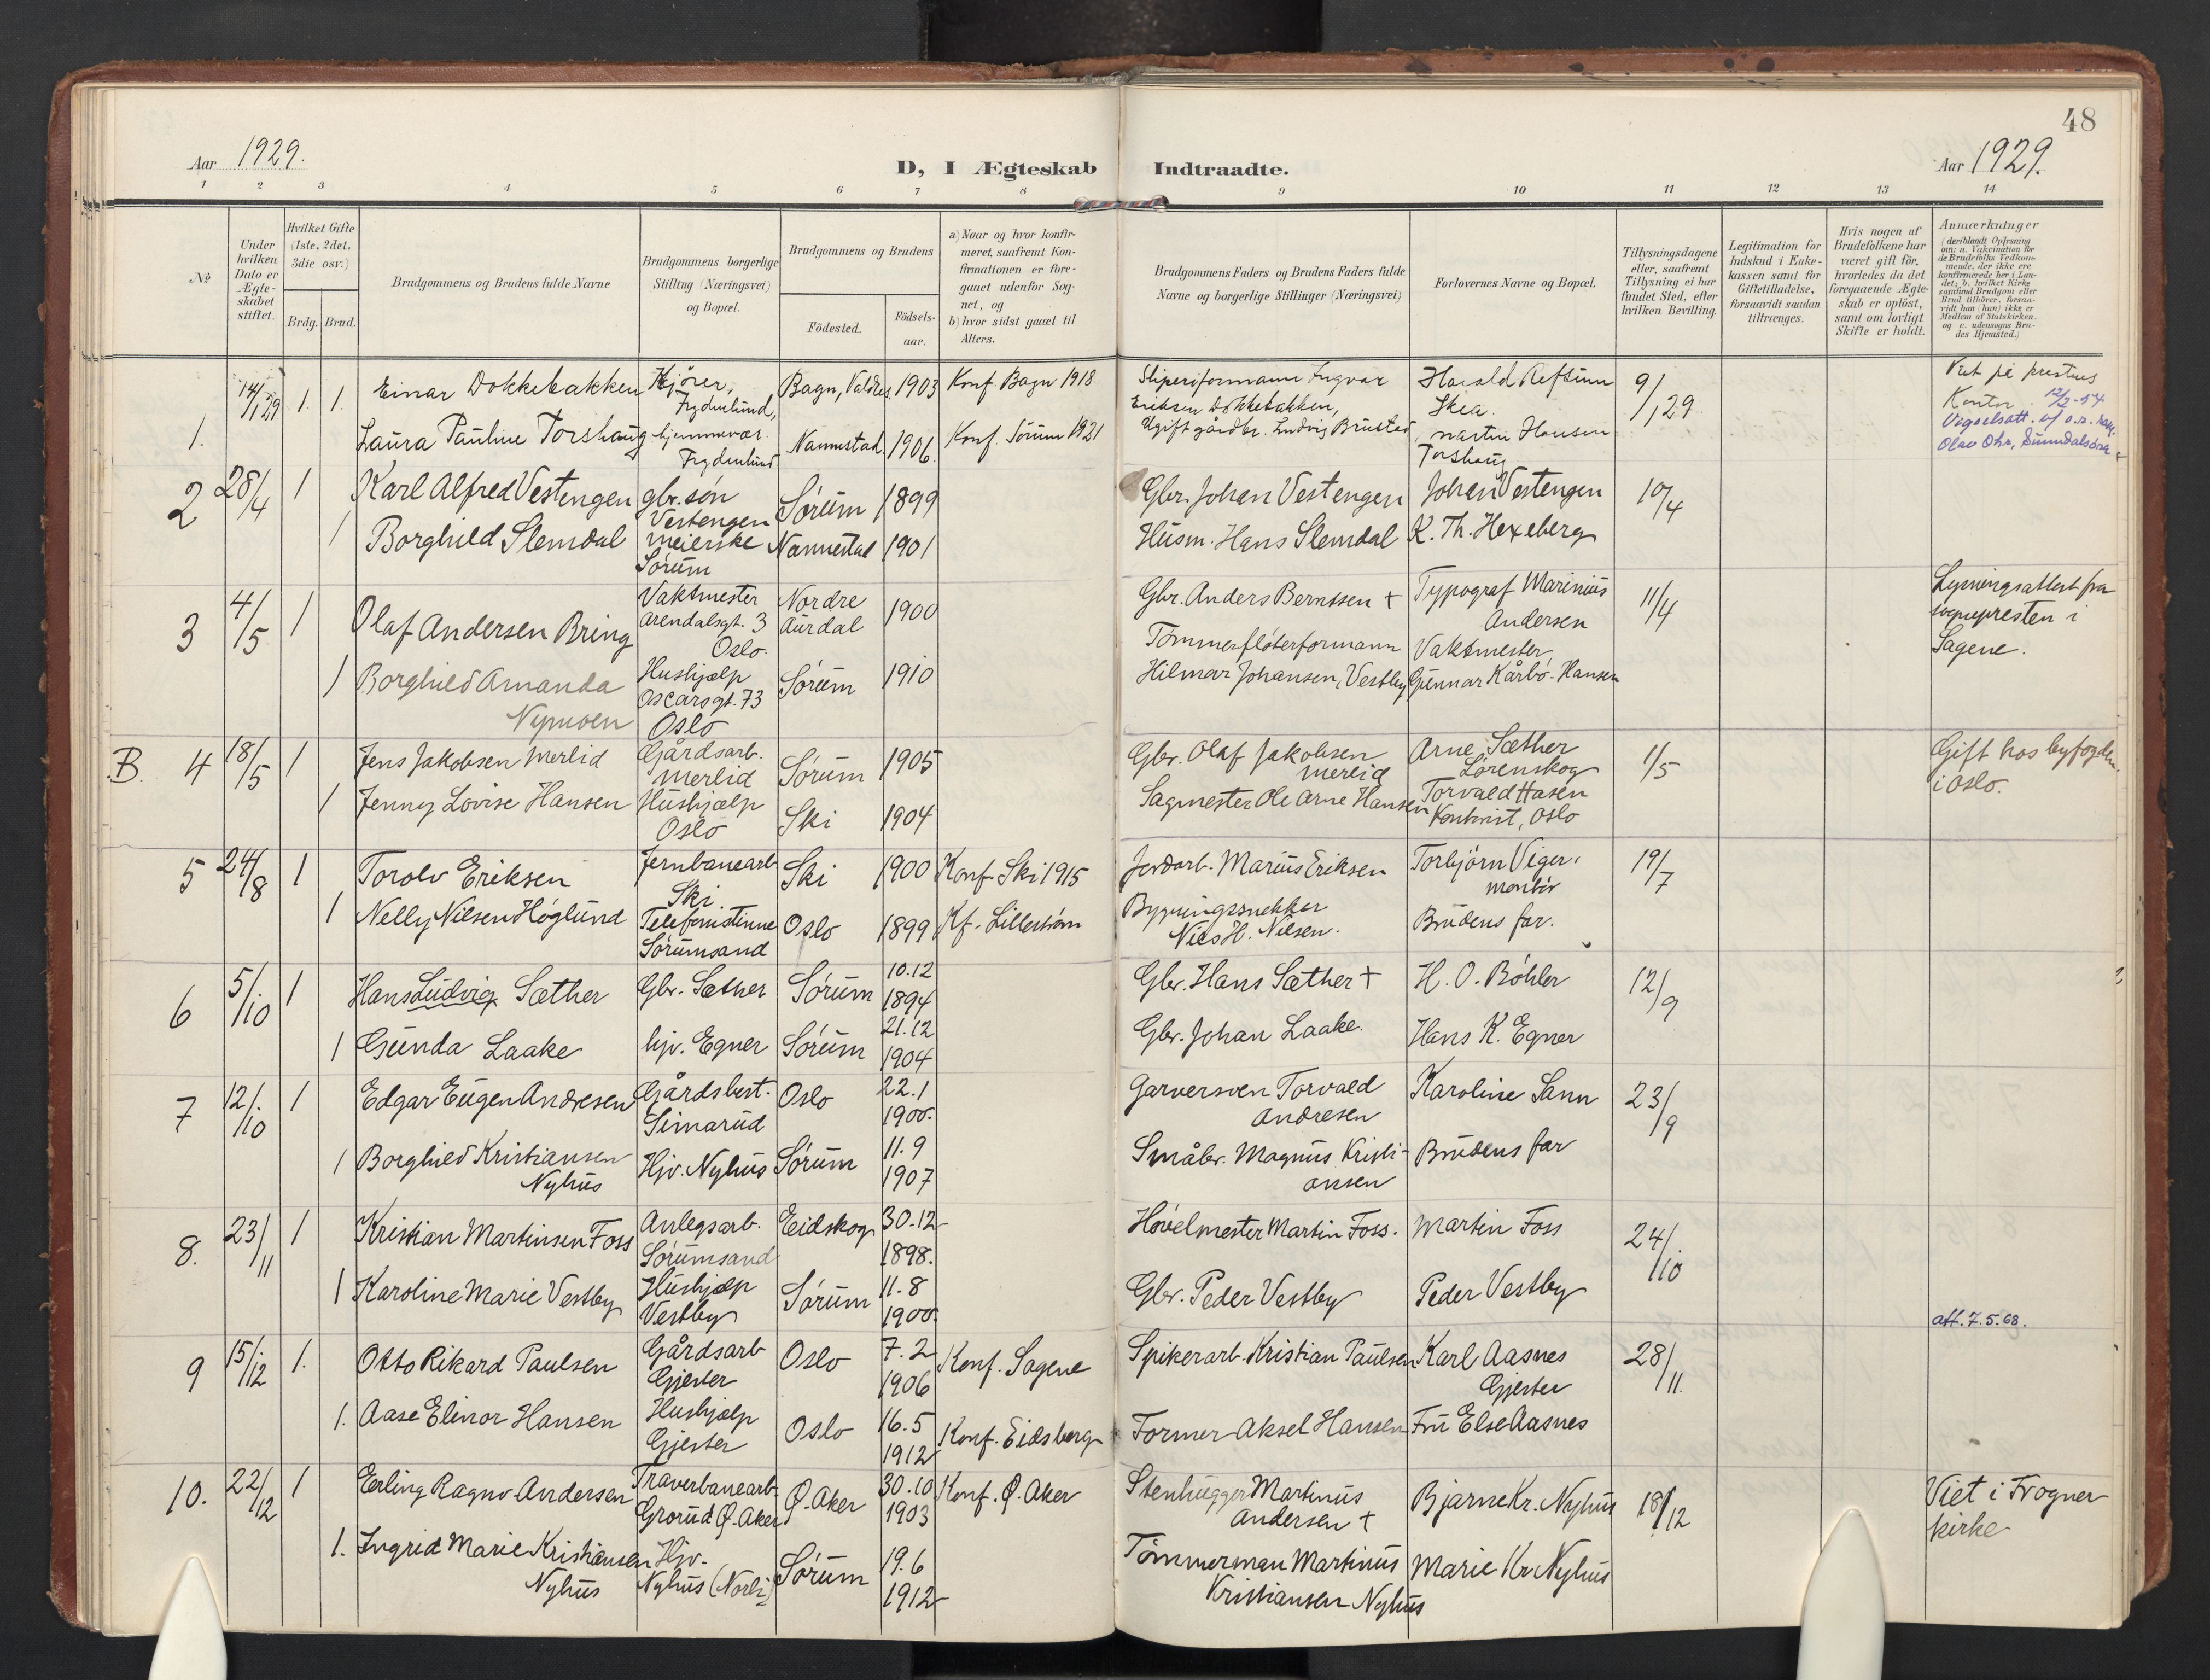 48
Aar 1929.
D, I Ægteskab Indtraadte.
Aar 1929.
1 2 3 4 5 6 7 8 9 10 11 12 13 14
No
Under hvilken Dato er Ægteskabet stiftet.
Hvilket Gifte (1ste, 2det, 3die osv.)
Brdg. Brud.
Brudgommens og Brudens fulde Navne
Brudgommens borgerlige Stilling (Næringsvei) og Bopæl.
Brudgommens og Brudens
Födested.
Födsels-aar.
a) Naar og hvor konfir-
meret, saafremt Kon-
firmationen er fore-
gaaet udenfor Sog-
net, og
b) hvor sidst gaaet til
Alters.
Brudgommens Faders og Brudens Faders fulde
Navne og borgerlige Stillinger (Næringsvei)
Forlovernes Navne og Bopæl.
Tillysningsdagene
eller, saafremt
Tillysning ei har
fundet Sted, efter
hvilken Bevilling.
Legitimation for
Indskud i Enke-
kassen samt for
Giftetilladelse,
forsaavidt saadan
tiltrænges.
Hvis nogen af
Brudefolkene har
været gift før,
hvorledes da det
foregaaende Ægte-
skab er oplöst,
samt om lovligt
Skifte er holdt.
Anmærkninger
(deriblandt Oplysning
om: a. Vakcination for
de Brudefolks Vedkom-
mende, der ikke ere
konfirmerede her i Lan-
det; b. hvilket Kirke-
samfund Brudgom eller
Brud tilhörer, forsaa-
vidt han (hun) ikke er
Medlem af Statskirken.
og c. udensogns Bru-
des Hjemsted.)
1. 14/1 29 1. 1.
Einar Dokkebakken Kjører, Frydenlund, Bagn, Valdres 1903 Konf. Bagn 1918
Sliperiformann Ingvar Eriksen Dokkebakken, Harald Refsum 9/1 29
Laura Pauline Torshaug hjemmevær. Frydenlund Nannestad 1906. Konf. Sørum 1921
Ugift gårdbr. Ludvig Brusted Martin Hansen Torshaug
Kontor 12/2-54
2 28/4 1 Karl Alfred Vestengen gbr. søn Vestengen Sørum 1899 Gbr. Johan Vestengen Johan Vestengen 10/4
1 Borghild Slemdal meierske Sørum Nannestad 1901 Husm. Hans Slemdal K. Th. Hexeberg
3 4/5 1 Olaf Andersen Bring Vaktmester Arendalsgt. 3 Oslo. Nordre Aurdal 1900 Gbr. Anders Berntsen + Typograf Marinius Andersen 11/4 Lysningsattest fra sognepresten i Sagene.
1 Borghild Amanda Nymoen Hushjælp Oscarsgt. 73 Oslo Sørum 1910 Tømmerfløterformann Hilmar Johansen, Vestby Vaktmester Gunnar Kårbø-Hansen
B. 4 18/5 1 Jens Jakobsen Merlid Gårdsarb. Merlid Sørum 1905 Gbr. Olaf Jakobsen Merlid Arne Sæther Lørenskog 1/5 Gift hos byfogden i Oslo.
1 Jenny Lovise Hansen Hushjælp Oslo Ski 1904 Sagmester Ole Arne Hansen Torvald Hasen Kontorist, Oslo
5 24/8 1 Torolv Eriksen Jernbanearb. Ski. Ski 1900 Konf. Ski 1915 Jordarb. Marius Eriksen Torbjørn Viger, montør 19/7
1 Nelly Nilsen Høglund Telefonistinne Sørumsand Oslo 1899 Kf. Lillestrøm Bygningssnekker Nils H. Nilsen. Brudens far.
6 5/10 1 Hans Ludvig Sæther Gbr. Sæther Sørum 10.12 1894 Gbr. Hans Sæther + H. O. Bøhler 12/9
1 Gunda Laake hjv. Egner Sørum 21.12 1904 Gbr. Johan Laake. Hans K. Egner
7 12/10 1 Edgar Eugen Andresen Gårdsbest. Simarud Oslo 22.1 1900. Garversven Torvald Andresen Karoline Sann 23/9
1 Borghild Kristiansen Nyhus Hjv. Nyhus Sørum 11.9 1907 Småbr. Magnus Kristi-ansen Brudens far
8. 23/11 1 Kristian Martinsen Foss Anlegsarb. Sørumsand Eidskog 30.12 1898. Høvelmester Martin Foss. Martin Foss 24/10
1 Karoline Marie Vestby Hushjælp Vestby Sørum 11.8 1900. Gbr. Peder Vestby Peder Vestby
att. 7.5.68.
9 15/12 1. Otto Rikard Paulsen Gårdsarb Gjester Oslo 7.2 1906 Konf. Sagene Spikerarb. Kristian Paulsen Karl Aasnes Gjester 28/11.
1. Aase Elinor Hansen Hushjælp Gjester Oslo 16.5 1912 Konf. Eidsberg Former Aksel Hansen Fru Else Aasnes
10. 22/12 1 Erling Ragnv Andersen Traverbanearb. Grorud Ø. Aker Ø. Aker 30.10 1903 Konf. Ø. Aker Stenhugger Martinus Andersen + Bjarne Kr. Nyhus 18/12 Viet i Frogner kirke
1. Ingrid Marie Kristiansen Nyhus Hjv. Nyhus (Norli) Sørum 19.6 1912 Tømmerman Martinus Kristiansen Nyhus Marie Kr. Nyhus